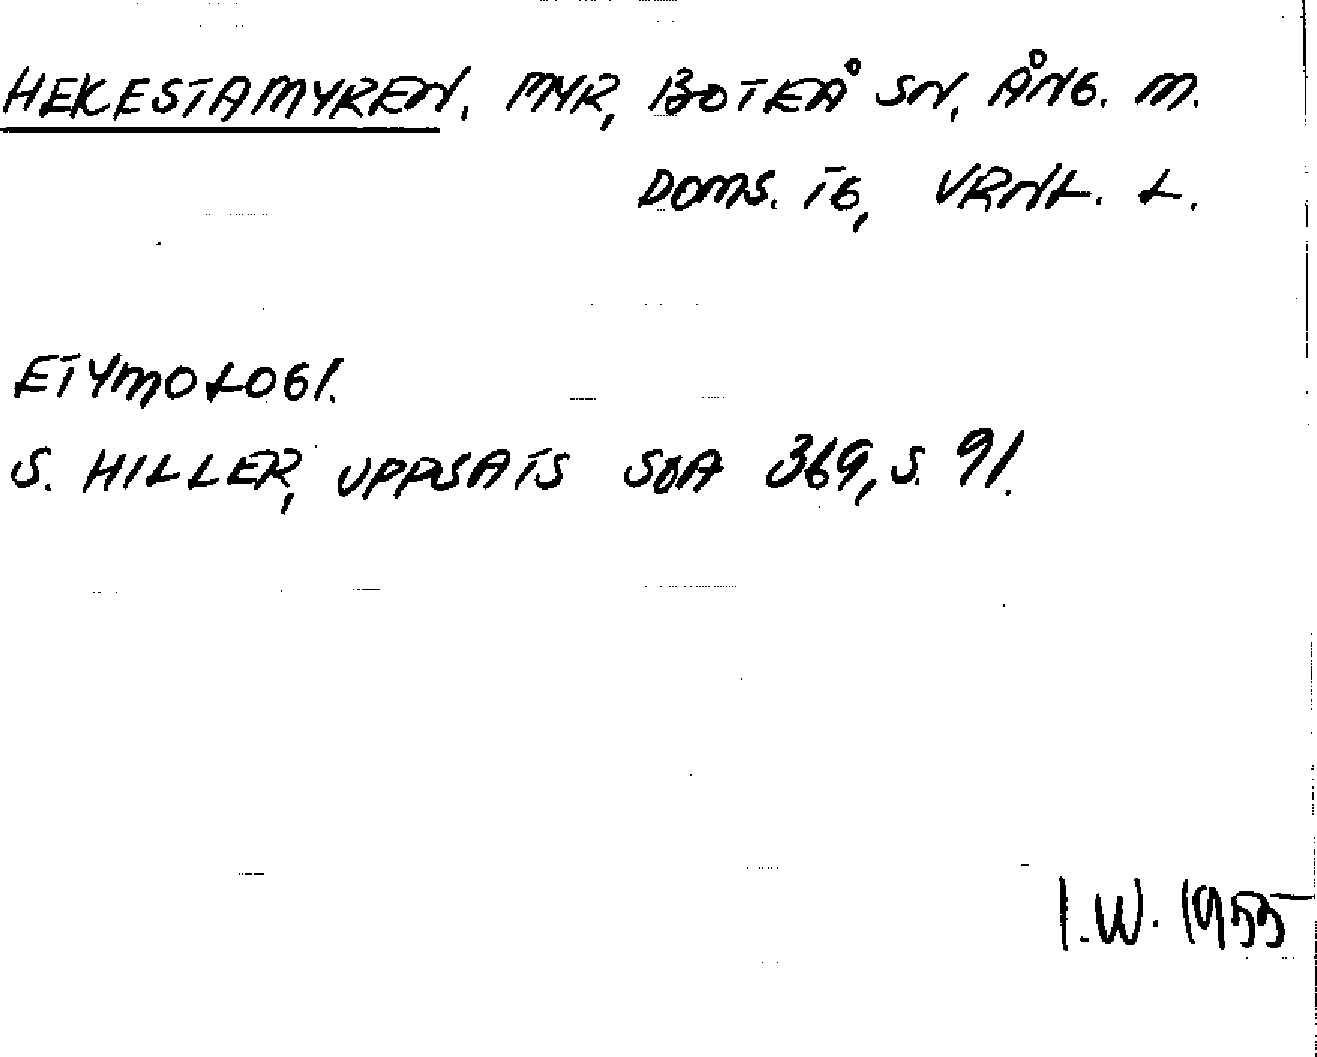 HEKESTAMYREN. MYR, BOTEÅ SN, ÅNG. M.
DOMS. TG, VRNL. L.
ETYMOLOGI.
S. HILLER, UPPSATS SOA 369, S. 91.
I.W. 1955